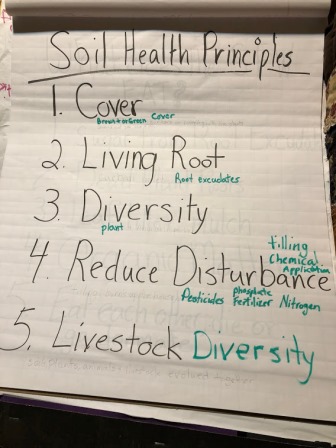 Soil Health Principles
1. Cover
Brown or Green Cover
2. Living Root
Root excudates
3. Diversity
plant
tilling
Chemical
Application
4. Reduce Disturbance
Pesticides phosphate Fertilizer Nitrogen
5. Livestock Diversity